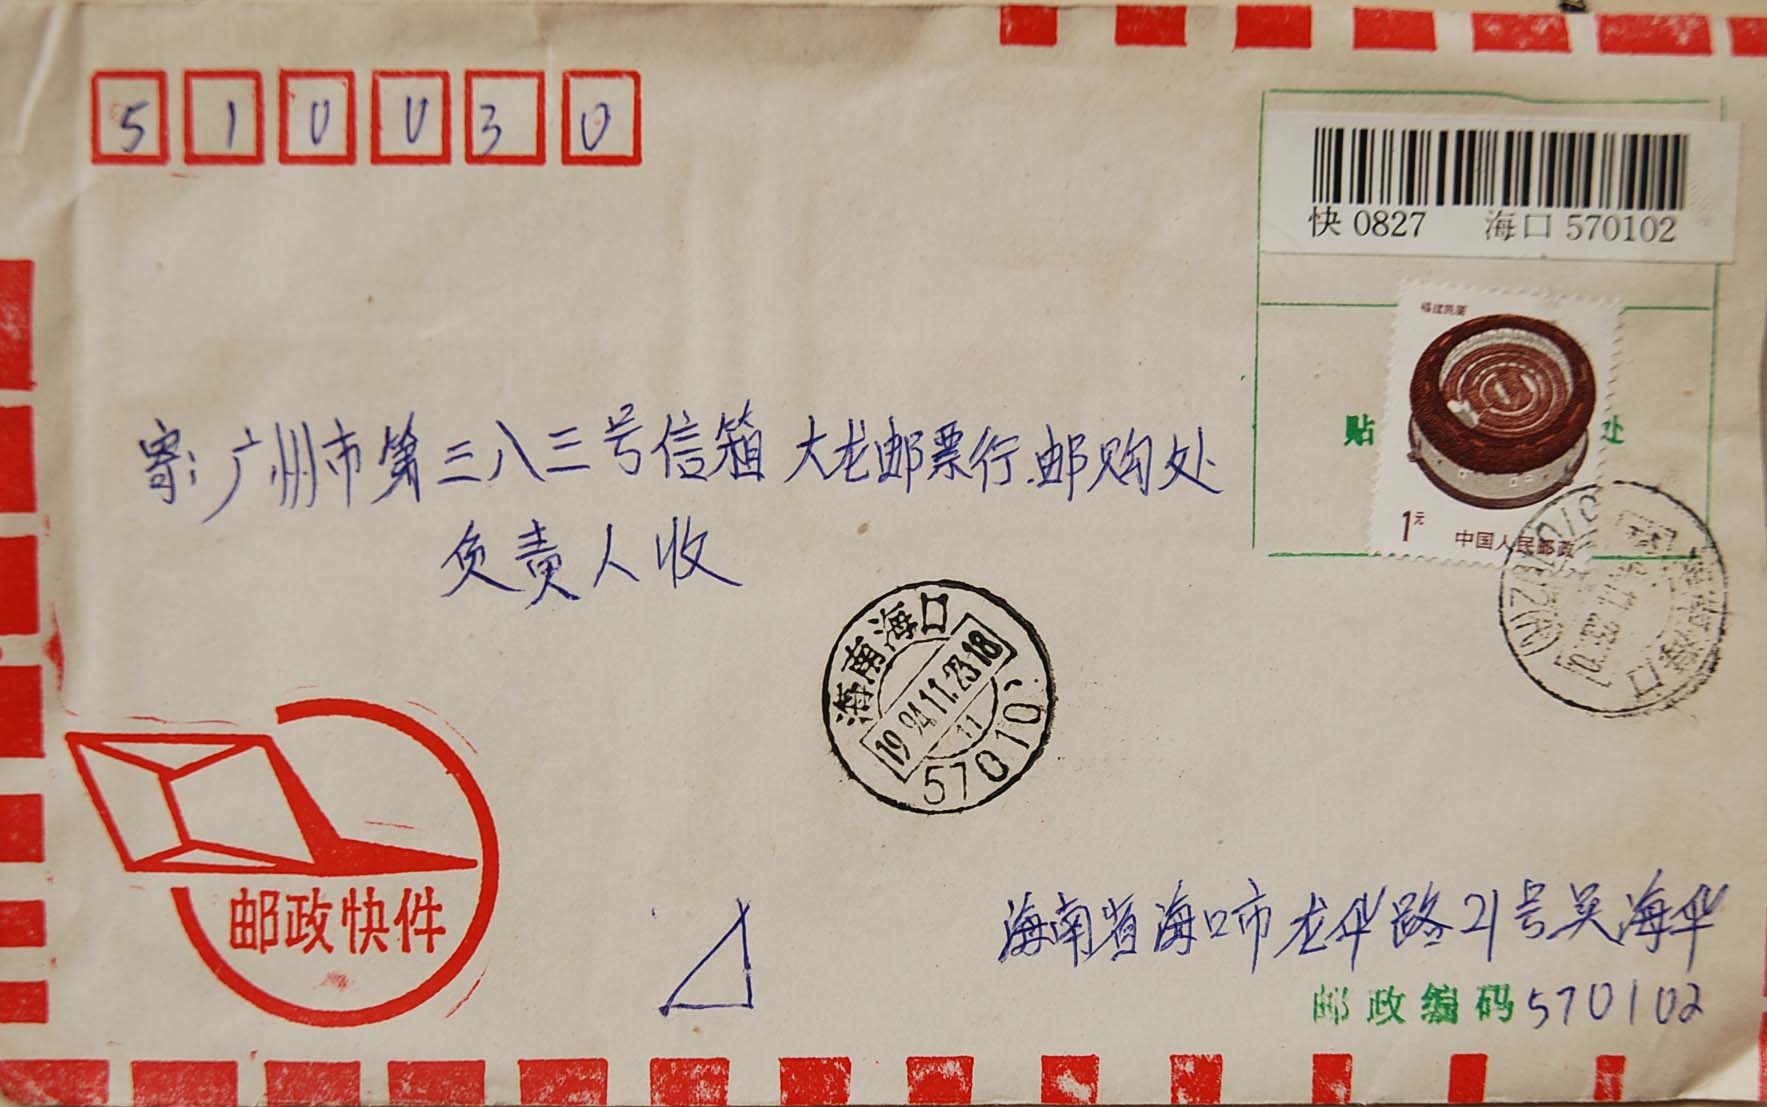 510030
快 0827 海口 570102
福建民居
贴 处
1元 中国人民邮政
寄:广州市第三八三号信箱 大龙邮票行.邮购处
负责人收
海南海口
1994.11.23 18
11
57010
邮政快件
海南省海口市龙华路21号吴海华
邮政编码570102